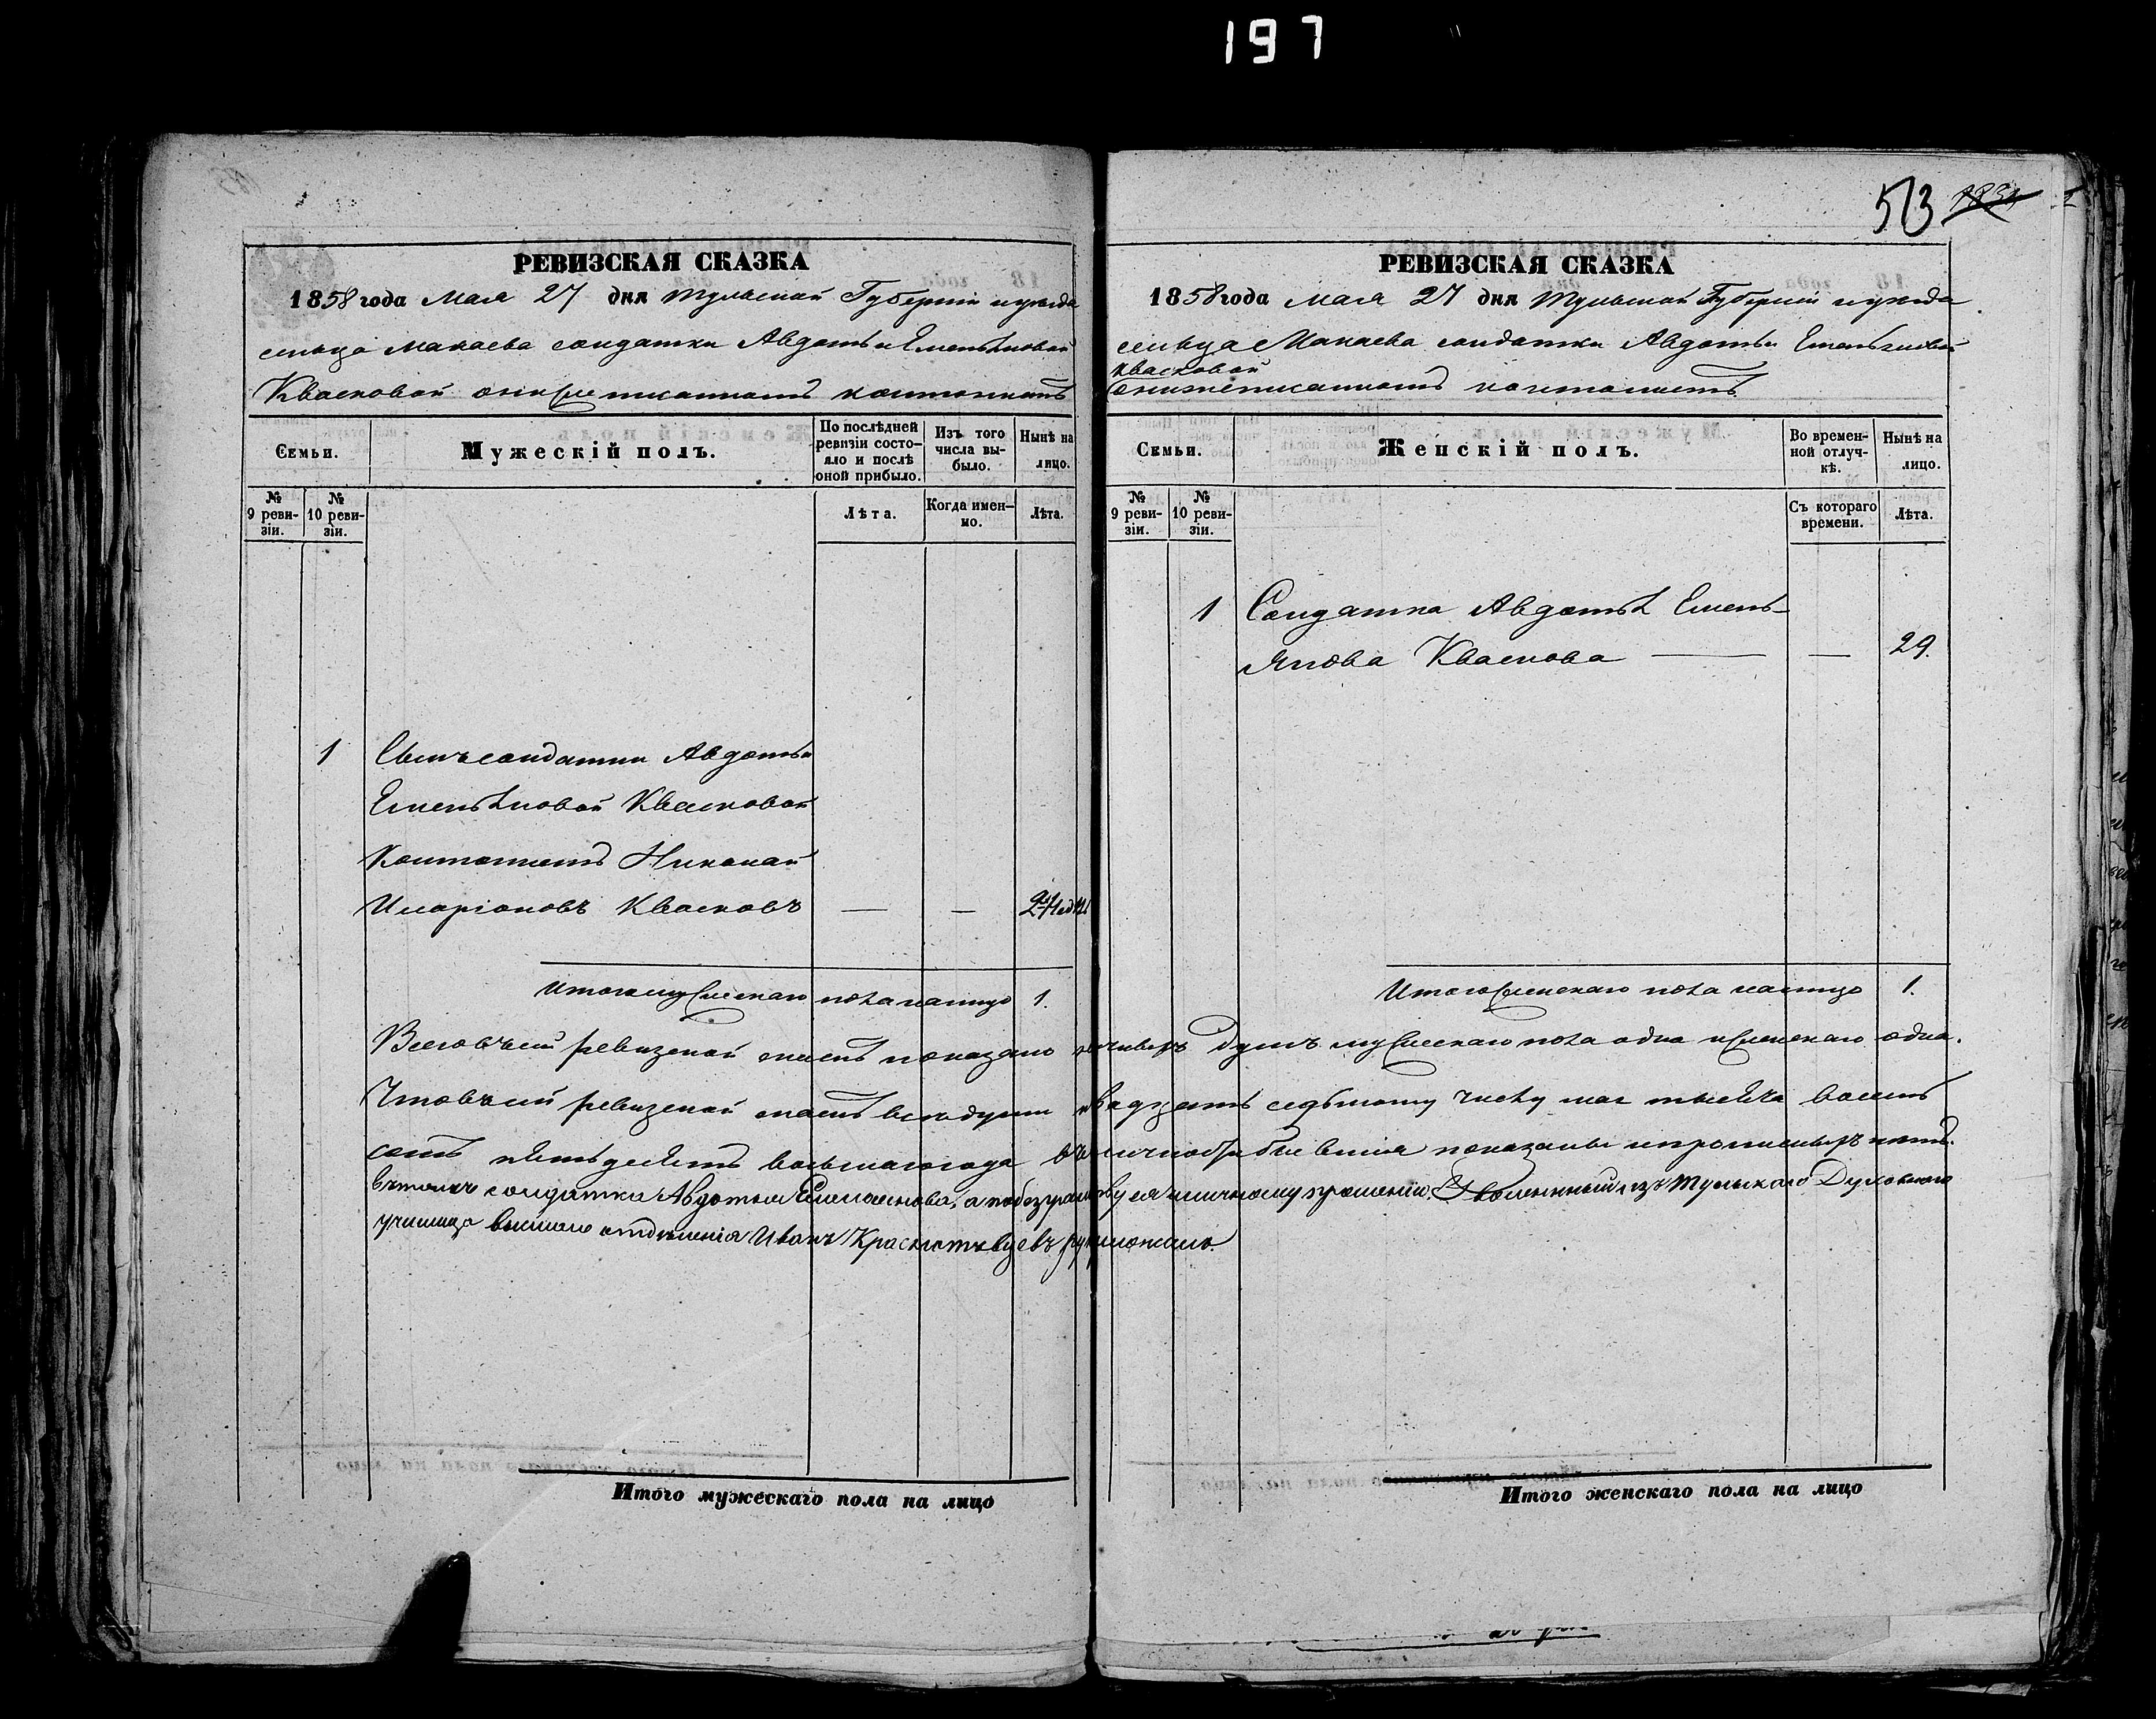 197
513
РЕВИЗСКАЯ СКАЗКА
1858 года Мая 27 дня Тульской Губерніи иуезда
сельца Макаева солдатки Авдотьи Емельяновой
Квасковой онижеписанномъ кантонистѣ
Семьи.
Мужескій полъ.
По послѣдней
ревизіи состо-
яло и послѣ
оной прибыло.
Изъ того
числа вы-
было.
Нынѣ на
лицо.
№
9 реви-
зіи.
№
10 реви-
зіи.
Лѣта.
Когда имен-
но.
Лѣта.
1 Сынъ солдатки Авдотьи
Емельяновой Квасковой
Кантонистъ Николай
Иларіоновъ Квасковъ — —
Итого мужескаго пола налицо 1.
РЕВИЗСКАЯ СКАЗКА
1858 года Мая 27 дня Тульской Губерніи иуезда
сельца Макаева солдатки Авдотьи Емельяновой
Квасковой
онижеписанномъ кантонистѣ
Семьи.
Женскій полъ.
Во времен-
ной отлуч-
кѣ.
Нынѣ на
лицо.
№
9 реви-
зіи.
№
10 реви-
зіи.
Съ котораго
времени.
Лѣта.
1 Солдатка Авдотья Емель-
янова Кваскова — — 29.
Итого женскаго пола налицо 1.
Всего въсей ревизской сказкѣ показано наличныхъ душъ мужескаго пола одна иженскаго одна.
Что въсей ревизской сказкѣ все души двадцать седьмому числу мая тысяча восемь
сотъ пятьдесятъ восьмаго года показаны ипрописныхъ нѣтъ.
въ томъ солдатка Авдотья Емельянова, а по безграмотству ея иличному прошенію Уволенный изъ Тульскаго Духовнаго
училища высшаго отдѣленія Иванъ Краснопевцевъ руку приложилъ.
Итого мужескаго пола на лицо
Итого женскаго пола на лицо